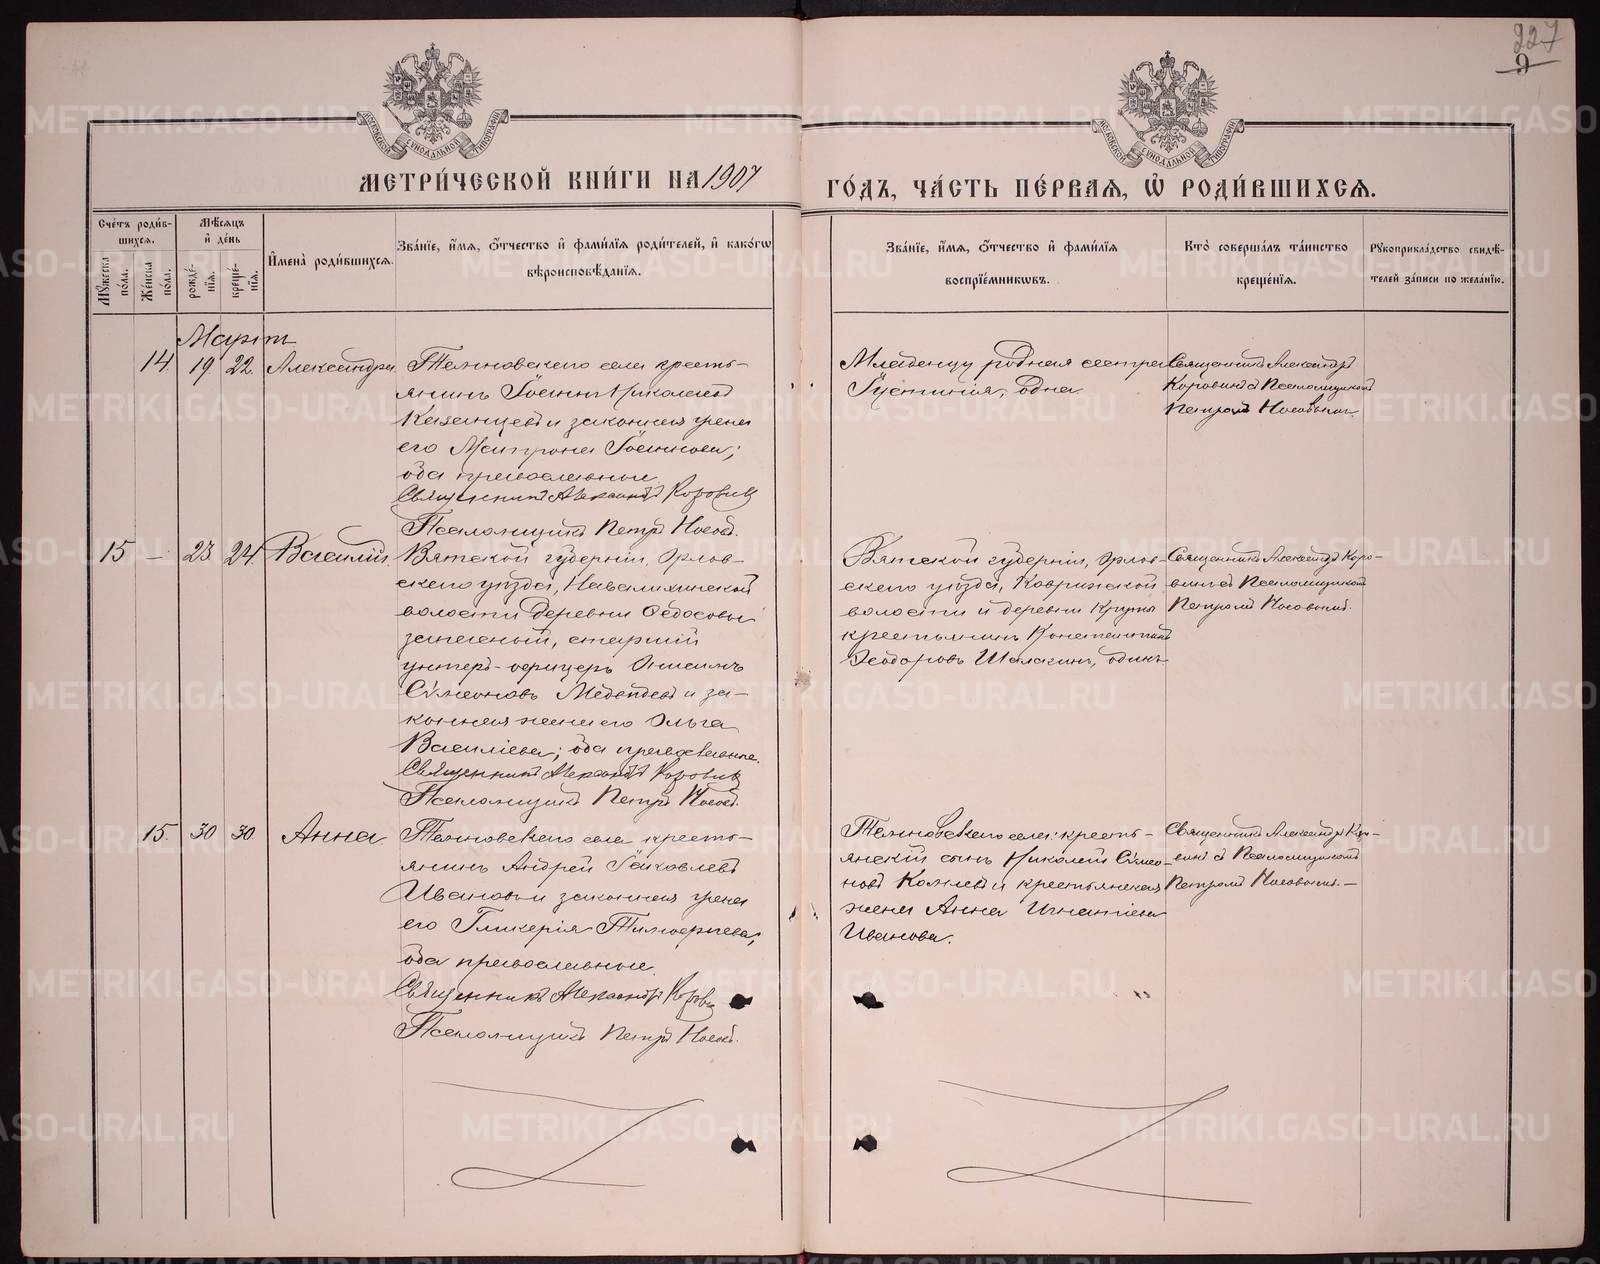 227
9
МЕТРИ́ЧЕСКОЙ КНИ́ГИ НА 1907
ГО́ДЪ, ЧА́СТЬ ПЕ́РВАѦ, Ѡ҆ РОДИ́ВШИХСѦ.
МОСКОВСКОЙ СУНОДАЛЬНОЙ ТИПОГРАФІИ
МОСКОВСКОЙ СУНОДАЛЬНОЙ ТИПОГРАФІИ
Сче́тъ роди́в-
шихсѧ.
Мꙋ́жеска по́ла.
Же́нска по́ла.
Мѣ́сѧцъ
и҆ де́нь
рожде́-
нїѧ.
креще́-
нїѧ.
И҆мена̀ роди́вшихсѧ.
Зва́нїе, и҆́мѧ, ѻ҆́тчество и҆ фами́лїѧ роди́телей, и҆ како́гѡ
вѣроисповѣ́данїѧ.
Зва́нїе, и҆́мѧ, ѻ҆́тчество и҆ фами́лїѧ
воспрїе́мникѡвъ.
Кто̀ соверша́лъ та́инство
креще́нїѧ.
Рꙋкоприкла́дство свидѣ́-
телей за́писи по жела́нїю.
Мартъ
14. 19 22. Александра.
Темновскаго села кресть-
янинъ Іоаннъ Николаевъ
Казанцевъ и законная жена
его Матрона Іоаннова;
оба православные.
Священникъ Александръ Коровинъ
Псаломщикъ Петръ Носовъ.
Младенцу родная сестра
Іустинія, одна.
Священникъ Александръ
Коровинъ съ Псаломщикомъ
Петромъ Носовымъ.
15 — 23. 24. Василій.
Вятской губерніи, Орлов-
скаго уѣзда,
волости деревни Ѳедосовы
запасный, старшій
унтеръ-офицеръ Онисимъ
Симеоновъ Медвѣдевъ и за-
конная жена его Ольга
Василіева; оба православные.
Священникъ Александръ Коровинъ
Псаломщикъ Петръ Носовъ.
Вятской губерніи, Орлов-
скаго уѣзда,
волости и деревни
крестьянинъ Константинъ
Ѳеодоровъ Шалагинъ, одинъ.
Священникъ Александръ Коро-
винъ съ Псаломщикомъ
Петромъ Носовымъ.
15. 30 30. Анна.
Темновскаго села кресть-
янинъ Андрей Іаковлевъ
Ивановъ и законная жена
его Гликерія Тимофеева,
оба православные.
Священникъ Александръ Коровинъ
Псаломщикъ Петръ Носовъ.
Темновскаго села: кресть-
янскій сынъ Николай Симео-
новъ и крестьянская
жена Анна Игнатіева
Иванова.
Священникъ Александръ Коро-
винъ съ Псаломщикомъ
Петромъ Носовымъ.—
METRIKI.GASO-URAL.RU